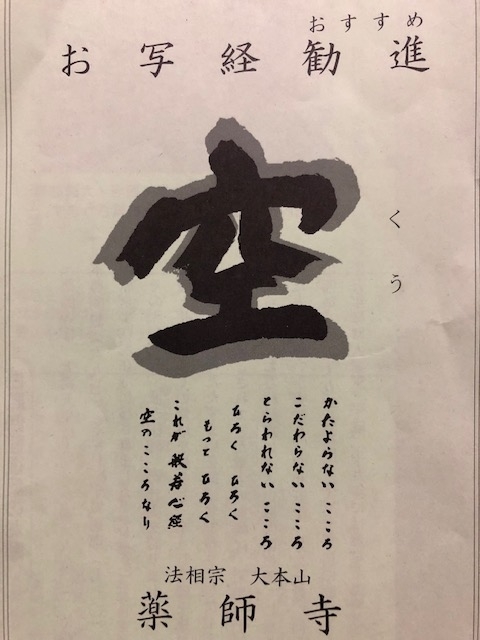 おすすめ
お写経勧進
空
くう
かたよらないこころ
こだわらないこころ
とらわれないこころ
ひろく ひろく
もっと ひろく
これが 般若心経
空のこころなり
法相宗 大本山
薬師寺